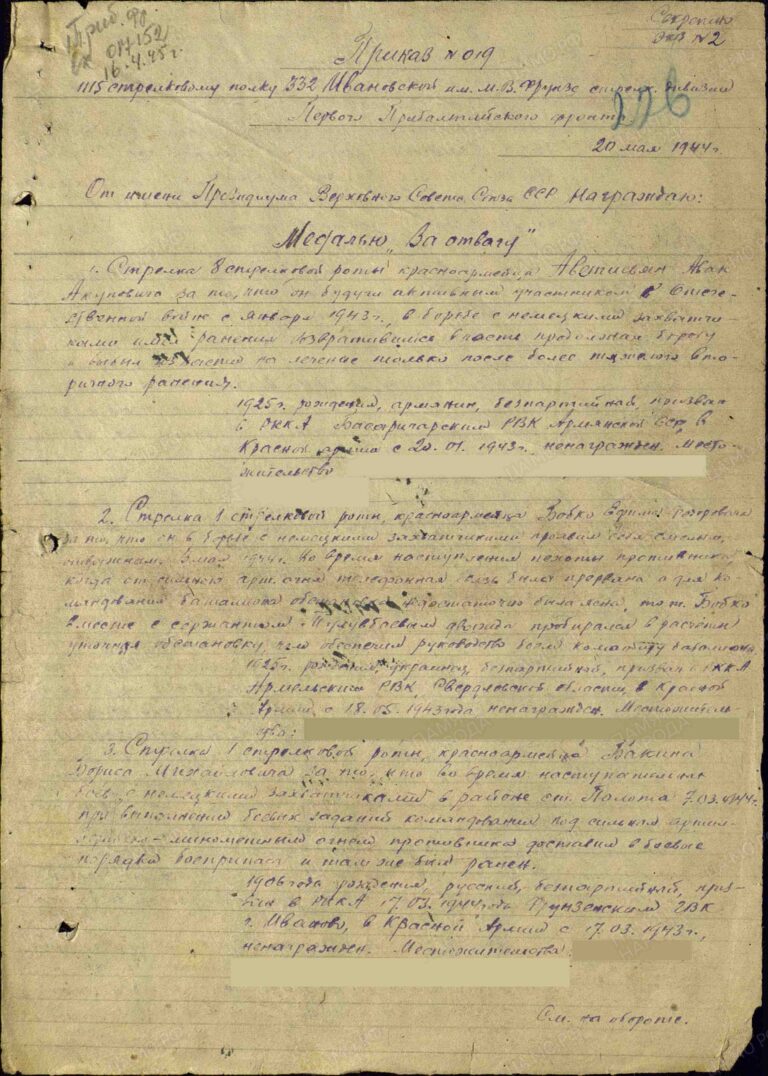 Приб. фр.
вх 017152
16.4.45 г.
Секретно
Экз №2
Приказ №019
1115 стрелковому полку 332 Ивановской им. М.В. Фрунзе стрелк. дивизии
226
Первого Прибалтийского фронта
20 мая 1944 г.
От имени Президиума Верховного Совета Союза ССР Награждаю:
Медалью „За отвагу"
1. Стрелка 8 стрелковой роты красноармейца Аветисьян
Акуповича за то, что он будучи активным участником в Отече-
ственной войне с января 1943 г., в борьбе с немецкими захватчи-
ками ранения возвратившись в часть продолжая борьбу
и выбыл из части на лечение только после более тяжелого вто-
ричного ранения.
1925 г. рождения, армянин, беспартийный, призван
в РККА РВК Армянской ССР, в
Красной армии с 20.01.1943 г. ненагражден. Место-
жительство
2. Стрелка 1 стрелковой роты, красноармейца Бобко
за то, что он в борьбе с немецкими захватчиками проявил себя смелым,
1944 г. Во время наступления пехоты противника,
когда от сильного арт. огня телефонная связь была прервана а для ко-
мандования батальона обстановка недостаточно была ясна, то т. Бобко
вместе с сержантом дважды пробирался в
уточняя обстановку, чем обеспечил руководство боем командиру батальона
1925 г. рождения, украинец, беспартийный, призван в РККА
РВК, Свердловской области, в Красной
Армии с 18.05.1943 года ненагражден. Местожитель-
ство:
3. Стрелка 1 стрелковой роты, красноармейца Бакина
Бориса Михайловича за то, что во время наступательных
боев с немецкими захватчиками в районе ст. Полота 7.03.1944 г.
при выполнении боевых заданий командования под сильным артил-
лерийско-минометным огнем противника доставил в боевые
порядки боеприпасы и там же был ранен.
1906 года рождения, русский, беспартийный, приз-
ван в РККА 17.03.1944 года Фрунзенским ГВК
г. Иваново, в Красной Армии с 17.03.1943 г.,
ненагражден. Местожительство:
См. на обороте.